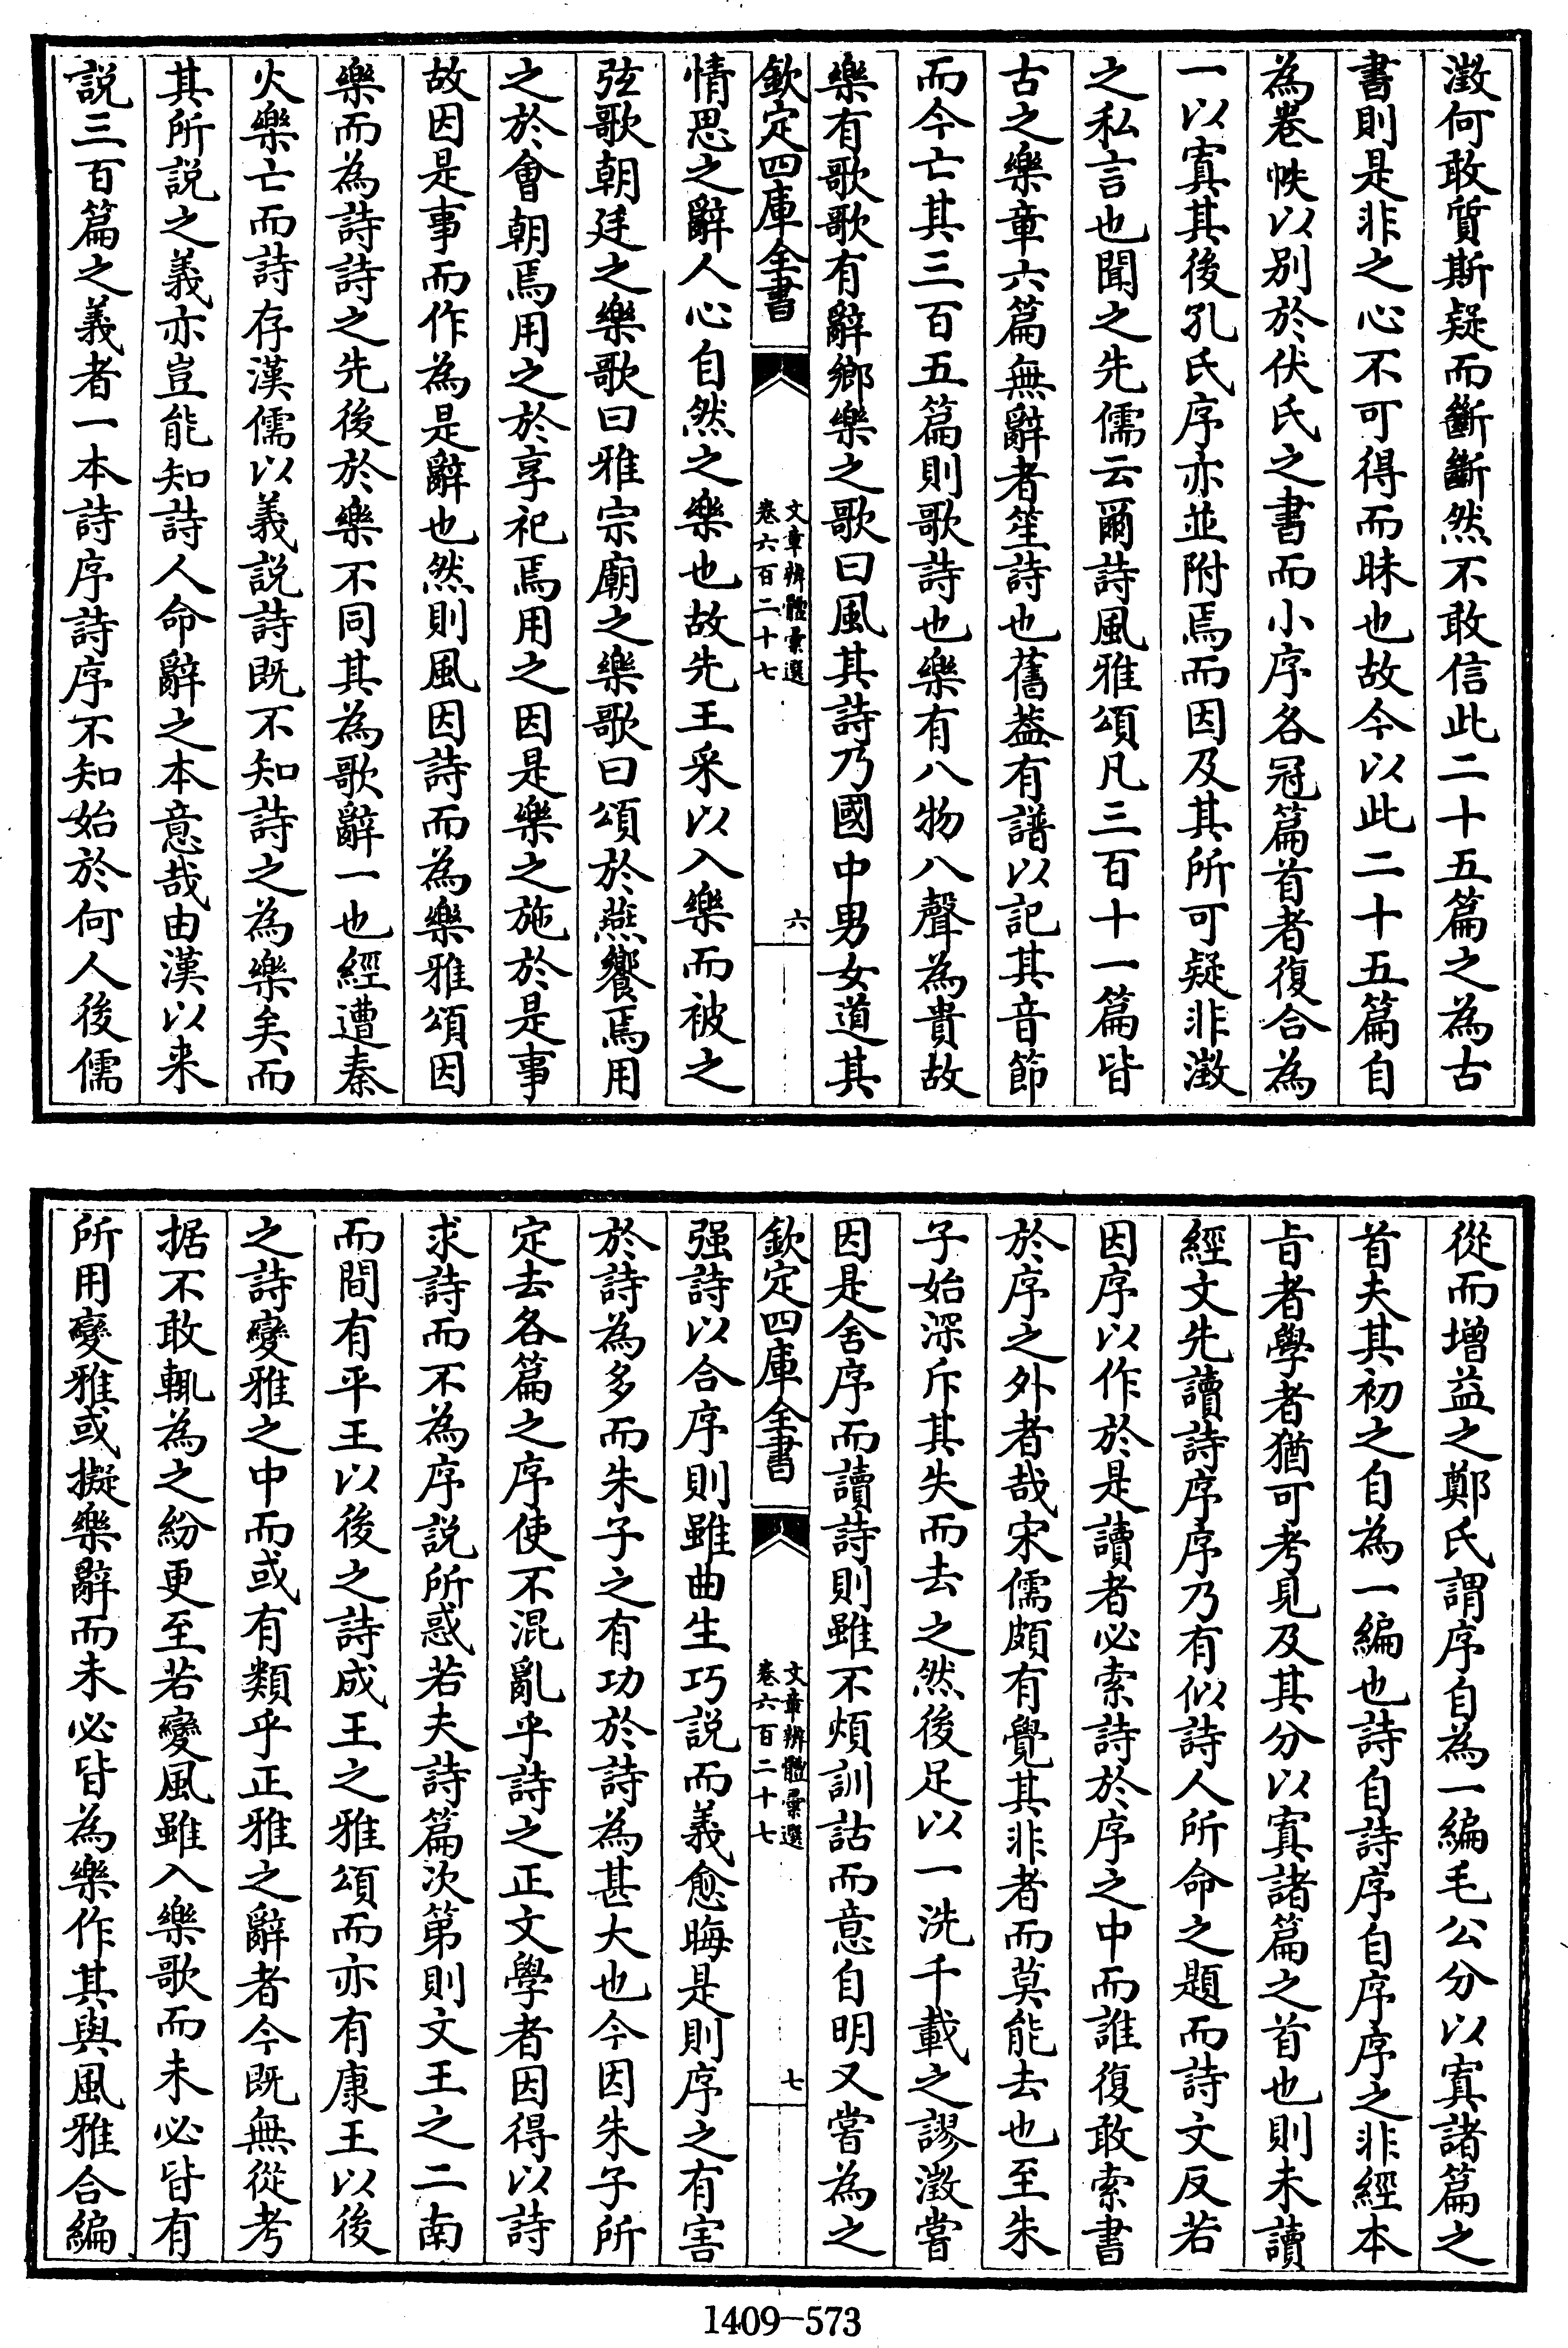 澂何敢質斯疑而斷斷然不敢信此二十五篇之為古
書則是非之心不可得而昧也故今以此二十五篇自
為卷帙以別於伏氏之書而小序各冠篇首者復合為
一以寘其後孔氏序亦並附焉而因及其所可疑非澂
之私言也聞之先儒云爾詩風雅頌凡三百十一篇皆
古之樂章六篇無辭者笙詩也舊葢有譜以記其音節
而今亡其三百五篇則歌詩也樂有八物人聲為貴故
樂有歌歌有辭鄉樂之歌曰風其詩乃國中男女道其
欽定四庫全書
文章辨體彙選
卷六百二十七
六
情思之辭人心自然之樂也故先王采以入樂而被之
弦歌朝廷之樂歌曰雅宗廟之樂歌曰頌於燕饗焉用
之於會朝焉用之於享祀焉用之因是樂之施於是事
故因是事而作為是辭也然則風因詩而為樂雅頌因
樂而為詩詩之先後於樂不同其為歌辭一也經遭秦
火樂亡而詩存漢儒以義説詩既不知詩之為樂矣而
其所説之義亦豈能知詩人命辭之本意哉由漢以来
説三百篇之義者一本詩序詩序不知始於何人後儒
從而增益之鄭氏謂序自為一編毛公分以寘諸篇之
首夫其初之自為一編也詩自詩序自序序之非經本
旨者學者猶可考見及其分以寘諸篇之首也則未讀
經文先讀詩序序乃有似詩人所命之題而詩文反若
因序以作於是讀者必索詩於序之中而誰復敢索書
於序之外者哉宋儒頗有覺其非者而莫能去也至朱
子始深斥其失而去之然後足以一洗千載之謬澂嘗
因是舍序而讀詩則雖不煩訓詁而意自明又嘗為之
欽定四庫全書
文章辨體彙選
卷六百二十七
七
强詩以合序則雖曲生巧説而義愈晦是則序之有害
於詩為多而朱子之有功於詩為甚大也今因朱子所
定去各篇之序使不混亂乎詩之正文學者因得以詩
求詩而不為序説所惑若夫詩篇次第則文王之二南
而間有平王以後之詩成王之雅頌而亦有康王以後
之詩變雅之中而或有類乎正雅之辭者今既無從考
据不敢輒為之紛更至若變風雖入樂歌而未必皆有
所用變雅或擬樂辭而未必皆為樂作其與風雅合編
1409-573